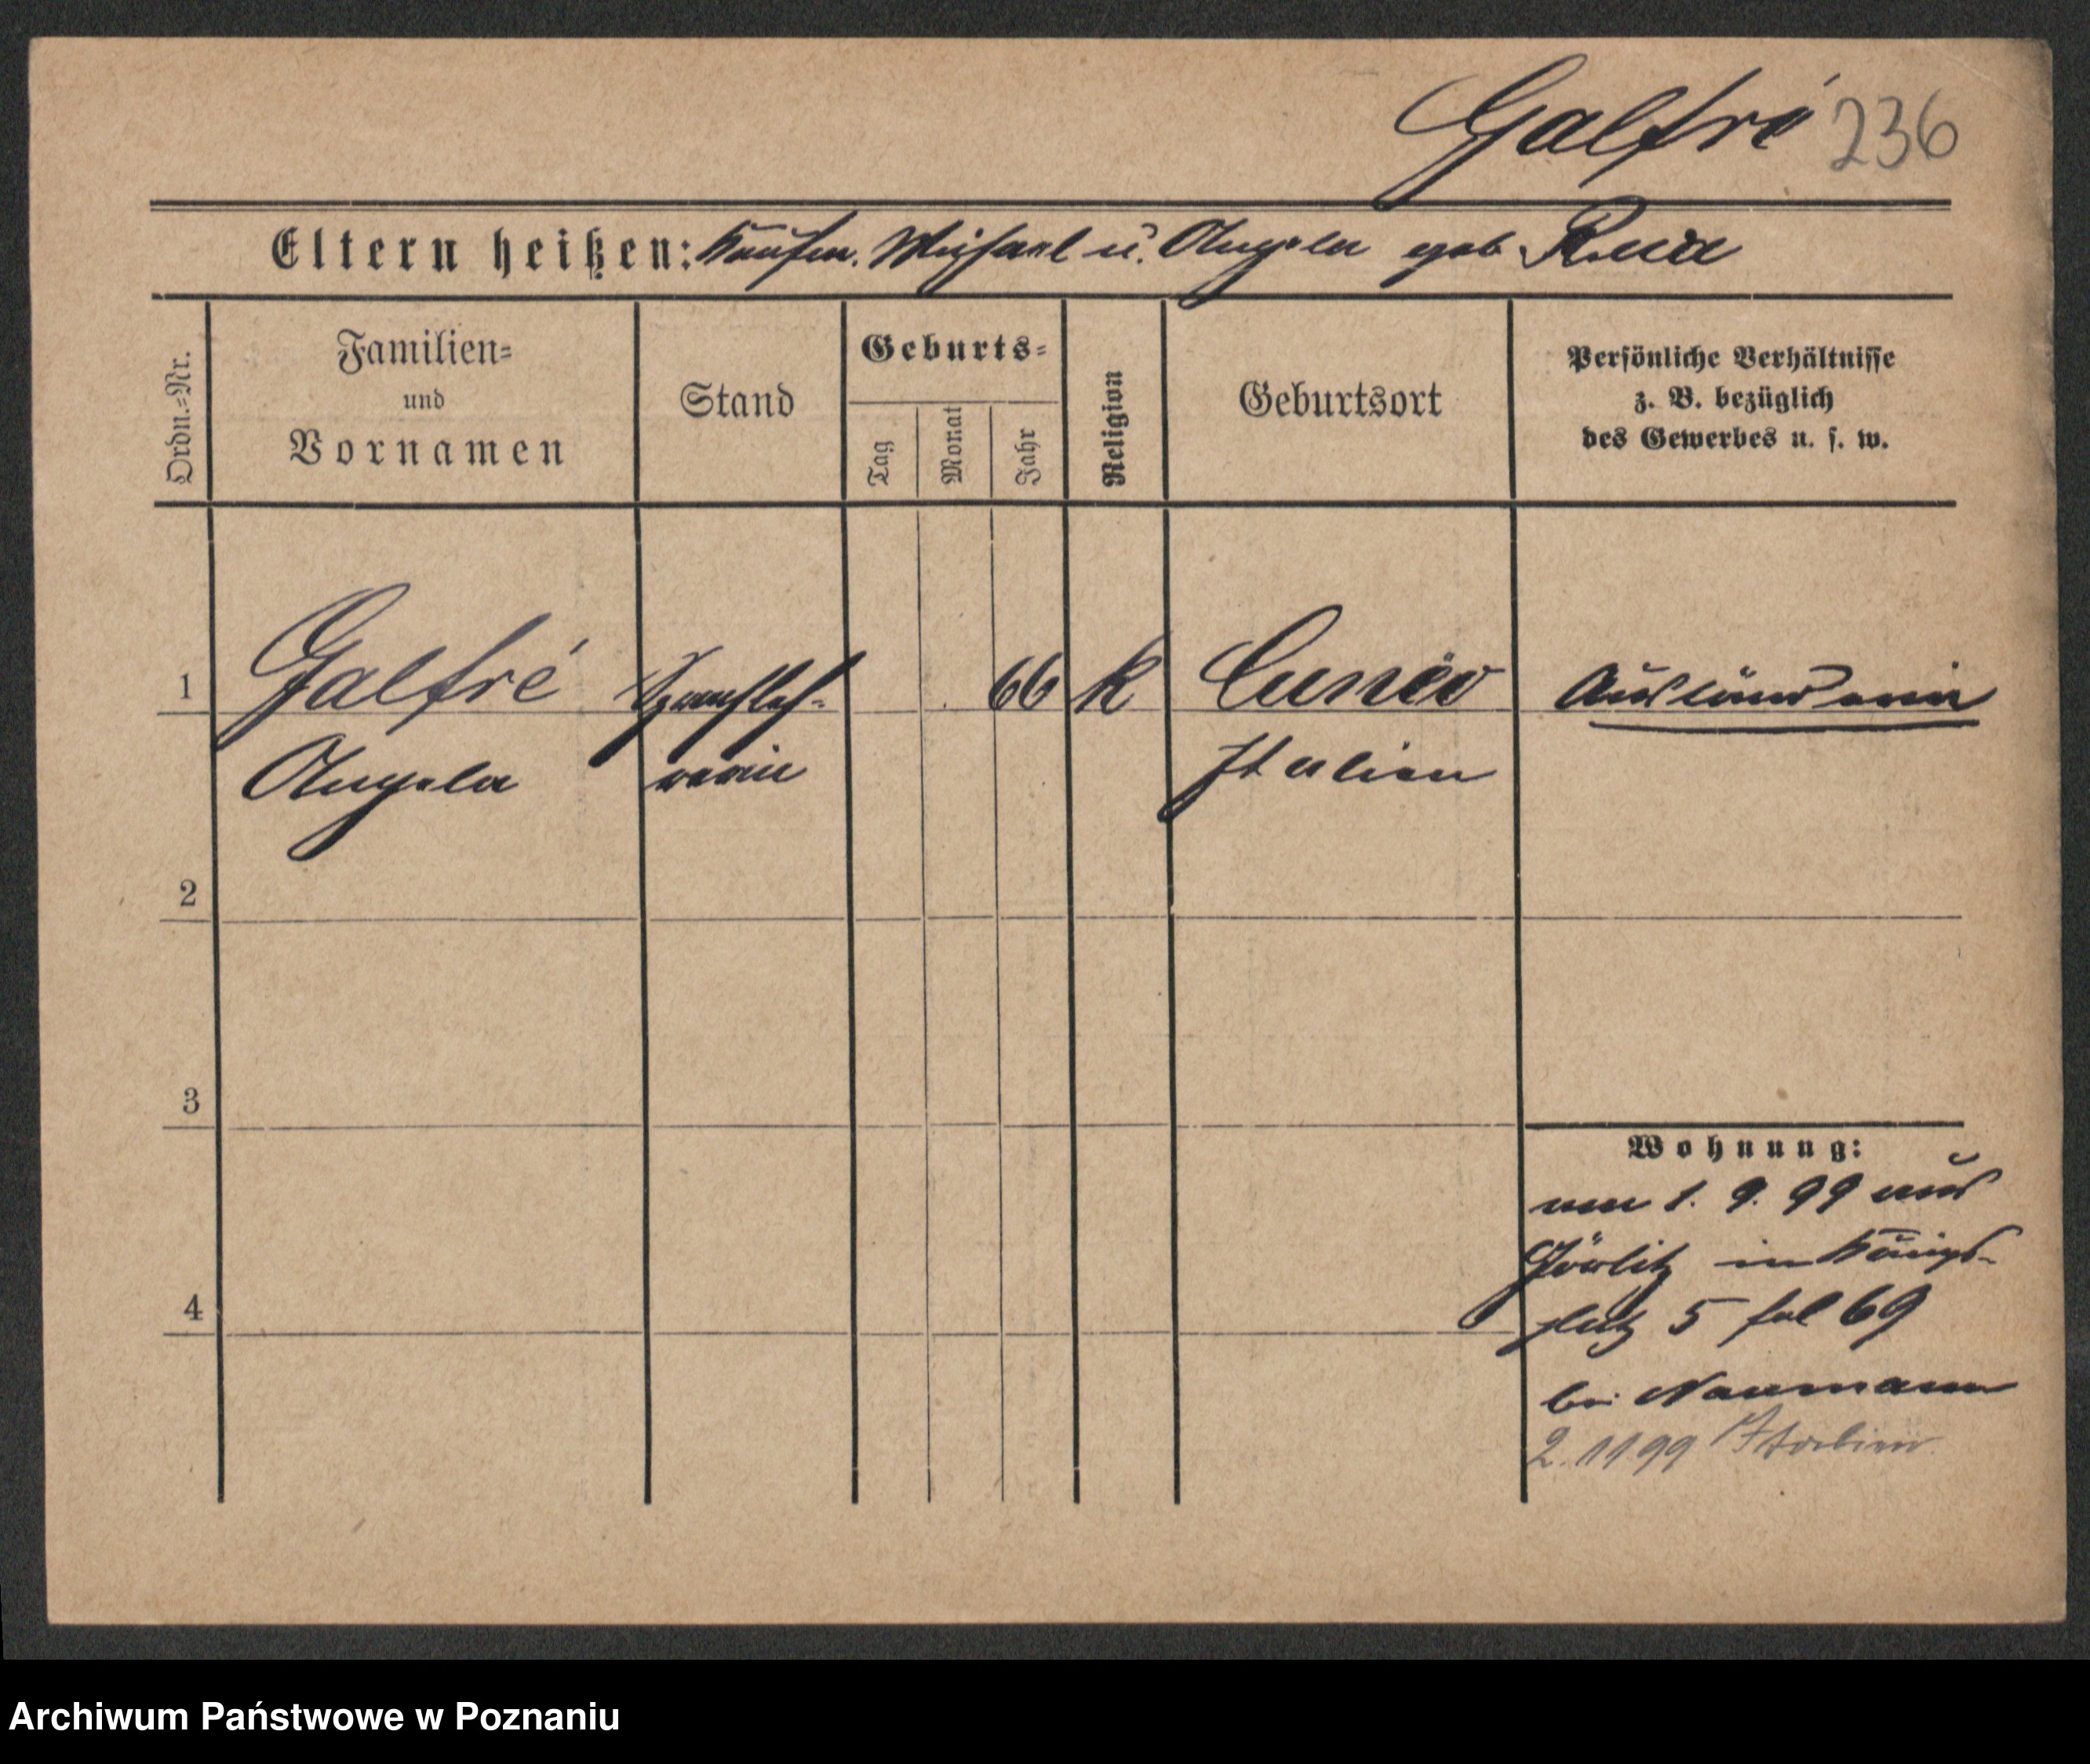 Galfré 236
Eltern heißen: Kaufm. Michael u. Angela geb. Rua
Ordn.=Nr.
Familien=
und
Vornamen
Stand
Geburts=
Tag
Monat
Jahr
Religion
Geburtsort
Persönliche Verhältnisse
z. B. bezüglich
des Gewerbes u. s. w.
1 Galfré Sprachleh- 66 k Cuneo Ausländerin
Angela rerin Italien
2
3
Wohnung:
am 1. 9. 99 aus
Görlitz in Königs-
4
platz 5 fol 69
bei Naumann
2. 11 99 Italien
Archiwum Państwowe w Poznaniu